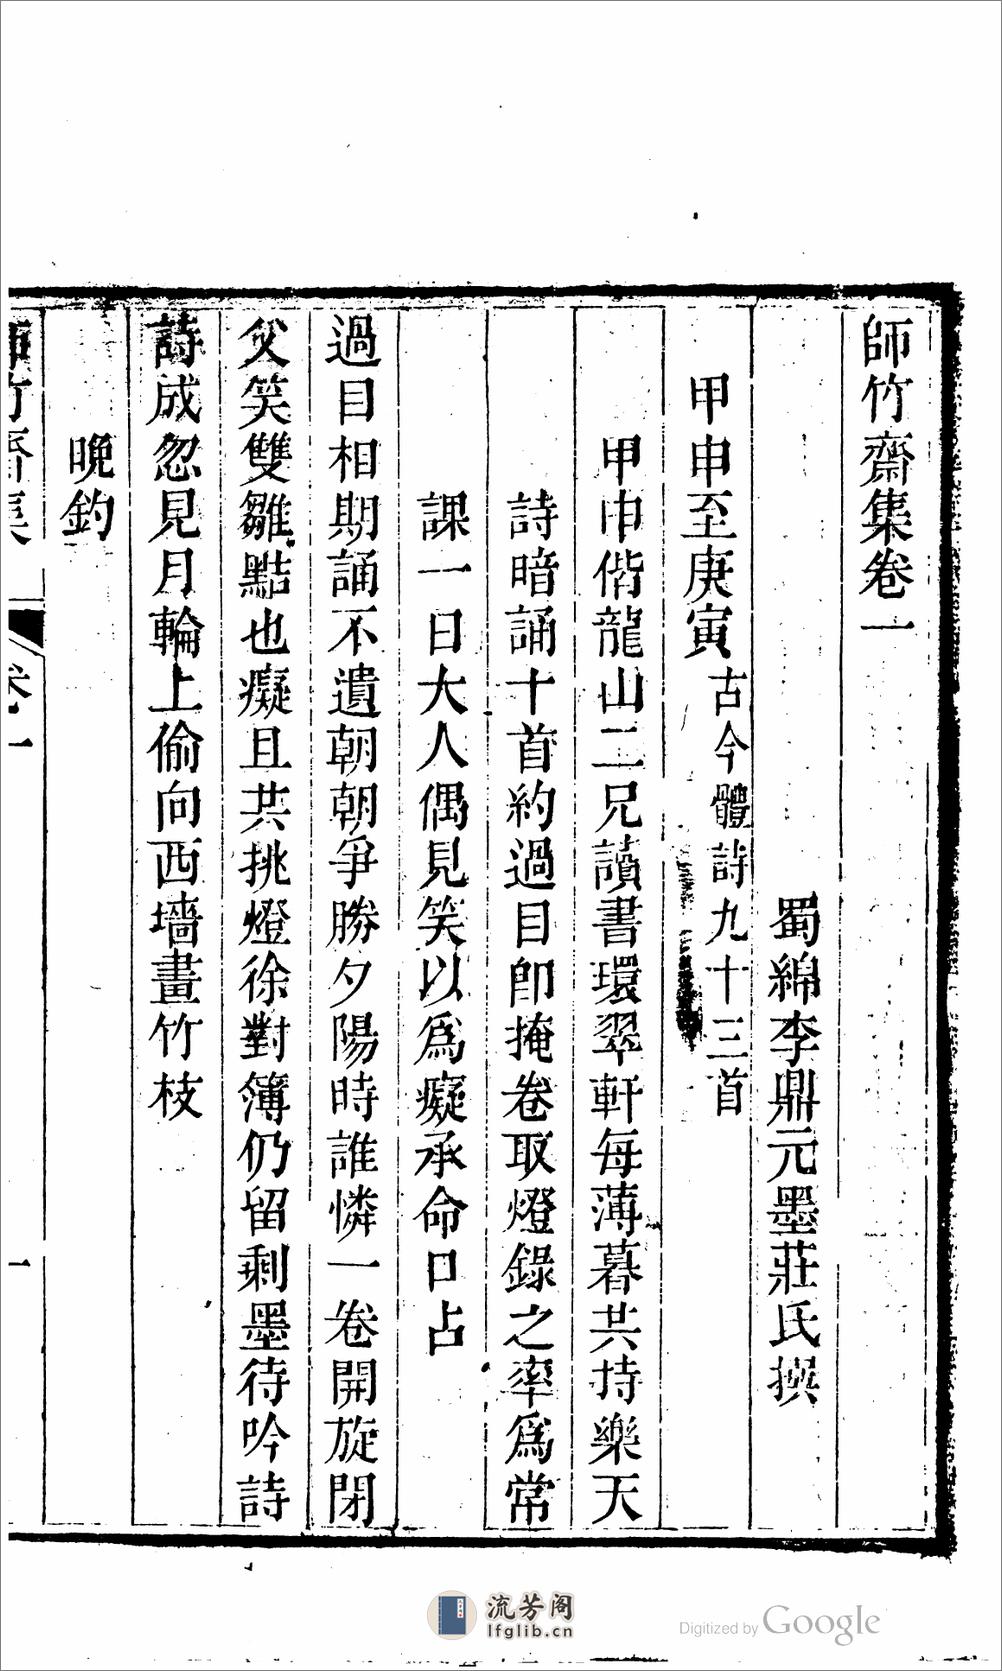 師竹齋集卷一
蜀綿李鼎元墨莊氏撰
甲申至庚寅古今體詩九十三首
甲申偕龍山二兄讀書環翠軒每薄暮共持樂天
詩暗誦十首約過目卽掩卷取燈錄之率爲常
課一日大人偶見笑以爲癡承命口占
過目相期誦不遺朝朝爭勝夕陽時誰憐一卷開旋閉
父笑雙雛黠也癡且共挑燈徐對簿仍留剩墨待吟詩
詩成忽見月輪上偷向西墻畫竹枝
晚釣
師竹齋集 卷一 一
流芳阁
lfglib.cn
Digitized by Google